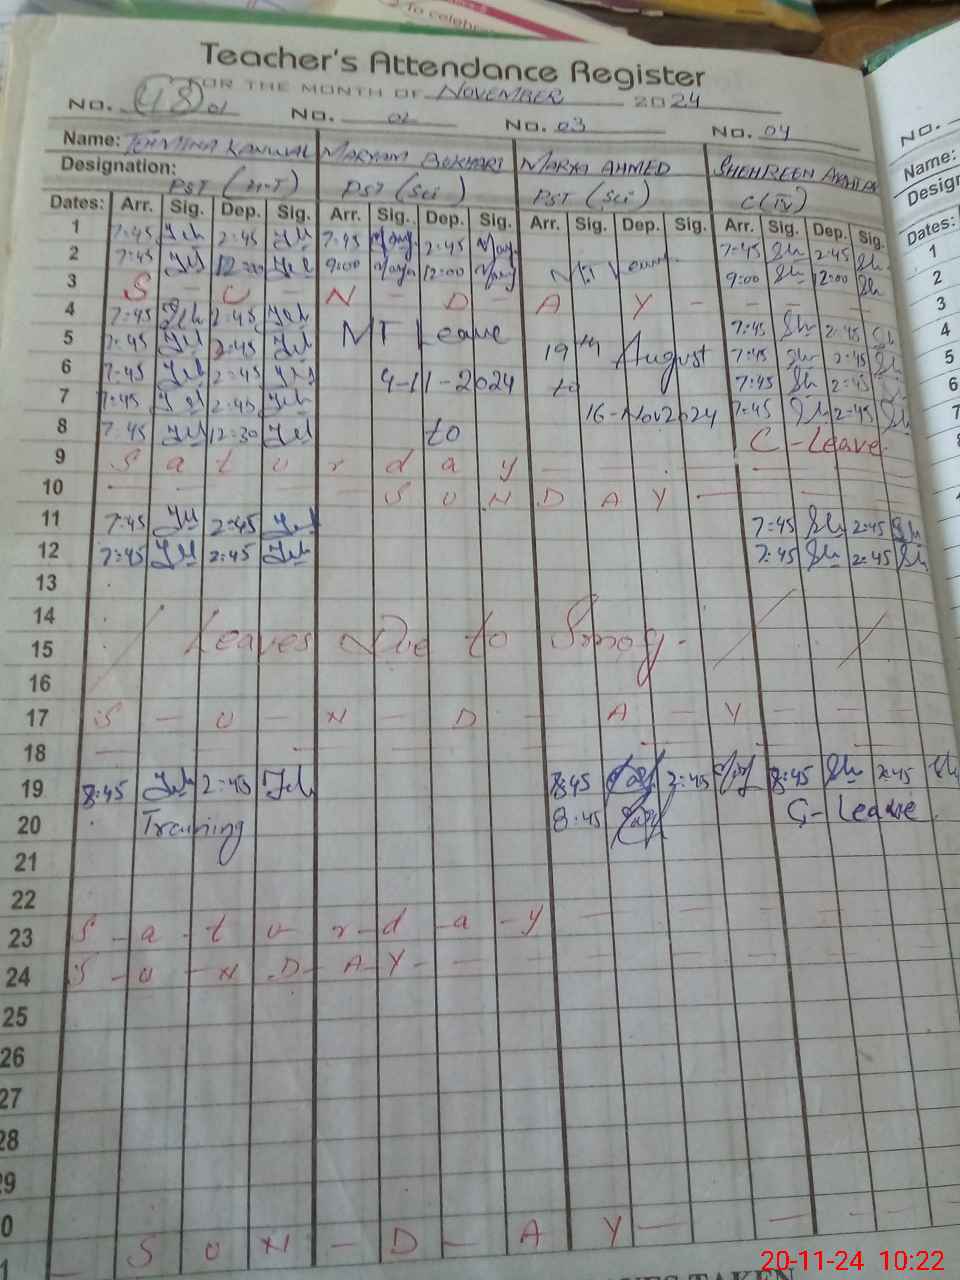 To celebra
Teacher's Attendance Register
FOR THE MONTH OF NOVEMBER 2024
No. 48 01 No. 02 No. 03 No. 04 No.
Name: TEHMINA KANWAL MARYAM BUKHARI MARYA AHMED SHEHREEN Name:
Designation: PST (M-T) PST (Sci) PST (Sci) C(IV) Design
Dates: Arr. Sig. Dep. Sig. Arr. Sig. Dep. Sig. Arr. Sig. Dep. Sig. Arr. Sig. Dep. Sig. Dates:
1 7:45 2:45 7:45 2:45 7:45 2:45 1
2 7:45 12:00 9:00 12:00 MT Leave 9:00 12:00 2
3 S - U - N - D - A - Y - 3
4 7:45 2:45 MT Leave 7:45 2:45 4
5 7:45 2:45 19th August 7:45 2:45 5
6 7:45 2:45 4-11-2024 to 7:45 2:45 6
7 7:45 2:45 16-Nov 2024 7:45 2:45 7
8 7:45 12:30 to C-Leave
9 S a t u r d a y
10 S U N D A Y
11 7:45 2:45 7:45 2:45
12 7:45 2:45 7:45 2:45
13
14
15 Leaves Due to Smog.
16
17 S - U - N - D - A - Y
18
19 8:45 2:45 8:45 2:45 8:45 2:45
20 Training 8:45 C-Leave
21
22
23 S - a - t u r - d - a - y
24 S - U - N - D - A - Y -
25
26
27
28
29
0
1 S U N - D - A Y
20-11-24 10:22